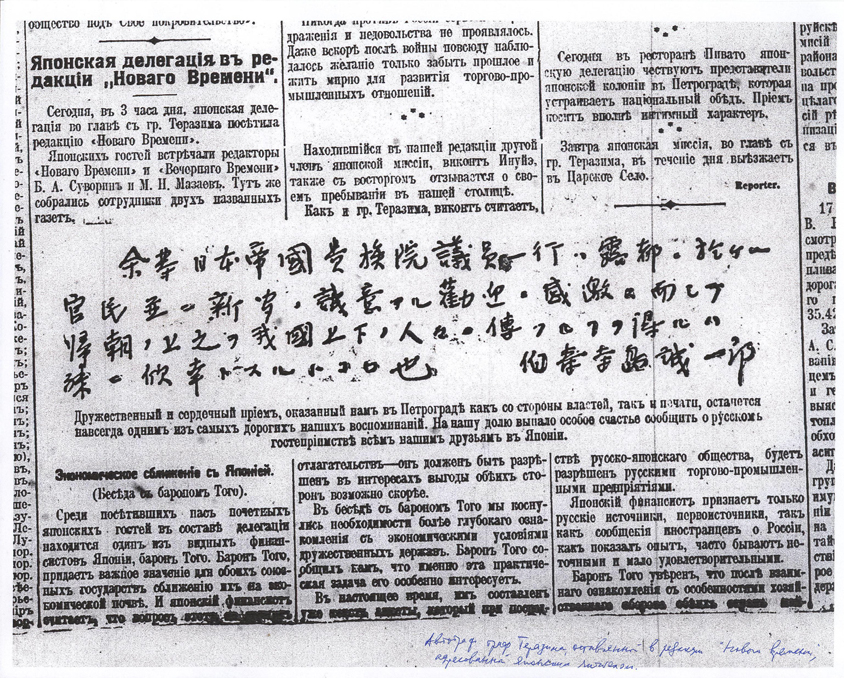 общество подъ Свое покровительство».
Японская делегація въ ре-
дакціи „Новаго Времени".
Сегодня, въ 3 часа дня, японская деле-
гація во главѣ съ гр. Теразима посѣтила
редакцію «Новаго Времени».
Японскихъ гостей встрѣчали редакторы
«Новаго Времени» и «Вечерняго Времени»
Б. А. Суворинъ и М. Н. Мазаевъ. Тутъ же
собрались сотрудники двухъ названныхъ
газетъ.
драженія и недовольства не проявлялось.
Даже вскорѣ послѣ войны повсюду наблю-
далось желаніе только забыть прошлое и
жить мирно для развитія торгово-про-
мышленныхъ отношеній.
Находившійся въ нашей редакціи другой
членъ японской миссіи, виконтъ Инуйэ,
также съ восторгомъ отзывается о сво-
емъ пребываніи въ нашей столицѣ.
Какъ и гр. Теразима, виконтъ считаетъ,
Сегодня въ ресторанѣ Пивато япон-
скую делегацію чествуютъ представители
японской колоніи въ Петроградѣ, которая
устраиваетъ національный обѣдъ. Пріемъ
носитъ вполнѣ интимный характеръ.
Завтра японская миссія, во главѣ съ
гр. Теразима, въ теченіе дня выѣзжаетъ
въ Царское Село.
Reporter.
余等日本帝國貴族院議員一行ハ露都ニ於ケル
官民並ニ新聞ノ誠意アル勸迎ニ感激ス而シテ
歸朝ノ上之ヲ我國上下ノ人々ニ傳フルコトヲ得ルハ
殊ニ欣幸トスルトコロ也 伯爵寺島誠一郎
Дружественный и сердечный пріемъ, оказанный намъ въ Петроградѣ какъ со стороны властей, такъ и печати, останется
навсегда однимъ изъ самыхъ дорогихъ нашихъ воспоминаній. На нашу долю выпало особое счастье сообщить о русскомъ
гостепріимствѣ всѣмъ нашимъ друзьямъ въ Японіи.
Экономическое сближеніе съ Японіей.
(Бесѣда съ барономъ Того).
Среди посѣтившихъ насъ почетныхъ
японскихъ гостей въ составѣ делегаціи
находится одинъ изъ видныхъ финан-
систовъ Японіи, баронъ Того. Баронъ Того,
придаетъ важное значеніе для обоихъ союз-
ныхъ государствъ сближенію ихъ на эко-
номической почвѣ. И японскій финансистъ
считаетъ, что вопросъ этотъ
отлагательствъ—онъ долженъ быть разрѣ-
шенъ въ интересахъ выгоды обѣихъ сто-
ронъ возможно скорѣе.
Въ бесѣдѣ съ барономъ Того мы косну-
лись необходимости болѣе глубокаго озна-
комленія съ экономическими условіями
дружественныхъ державъ. Баронъ Того со-
общилъ намъ, что именно эта практиче-
ская задача его особенно интересуетъ.
Въ настоящее время, имъ составленъ
ствѣ русско-японскаго общества, будетъ
разрѣшенъ русскими торгово-промышлен-
ными предпріятіями.
Японскій финансистъ признаетъ только
русскіе источники, первоисточники, такъ
какъ сообщенія иностранцевъ о Россіи,
какъ показалъ опытъ, часто бываютъ не-
точными и мало удовлетворительными.
Баронъ Того увѣренъ, что послѣ взаим-
наго ознакомленія съ особенностями хозяй-
Автограф графа Теразима, оставленный в редакции "Нового времени",
адресованный японским читателям.